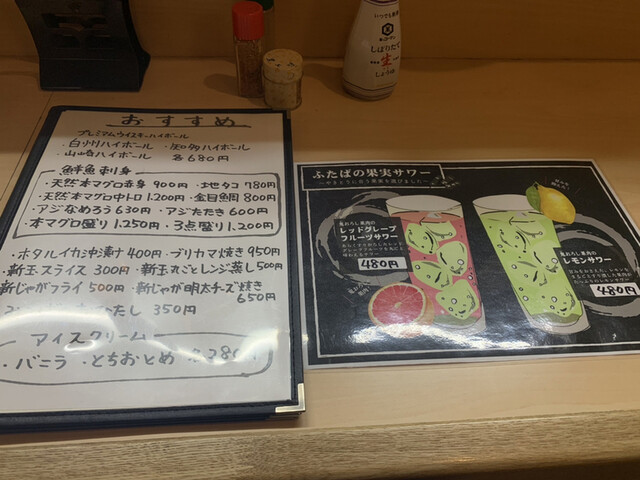 おすすめ
プレミアムウイスキーハイボール
・白州ハイボール ・知多ハイボール
・山崎ハイボール 各680円
鮮魚刺身
・天然本マグロ赤身 900円 ・地タコ 780円
・天然本マグロ中トロ 1.200円 ・金目鯛 800円
・アジなめろう 630円 ・アジたたき 600円
・本マグロ盛り 1.250円 ・3点盛り 1.200円
・ホタルイカ沖漬け 400円 ・ブリカマ焼き 950円
・新玉スライス 300円 ・新玉丸ごとレンジ蒸し 500円
・新じゃがフライ 500円 ・新じゃが明太チーズ焼き 650円
たし 350円
アイスクリーム
・バニラ ・とちおとめ 各280円
いつでも新鮮
しぼりたて
生
しょうゆ
ふたばの果実サワー
〜やきとりに合う果実を選びました〜
荒おろし果肉の
レッドグレープ
フルーツサワー
480円
荒おろし果肉の
レモンサワー
480円